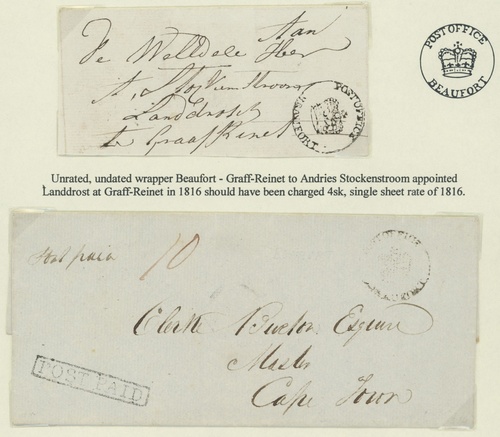 Aan
De Weledele Heer
A, Stockenstroom
Landdrost
te Graaf Reinet
POST OFFICE
BEAUFORT
POST OFFICE
BEAUFORT
Unrated, undated wrapper Beaufort - Graff-Reinet to Andries Stockenstroom appointed
Landdrost at Graff-Reinet in 1816 should have been charged 4sk, single sheet rate of 1816.
Post paid
10
POST OFFICE
BEAUFORT
Clerke Burton Esquire
Master
Cape Town
POST PAID